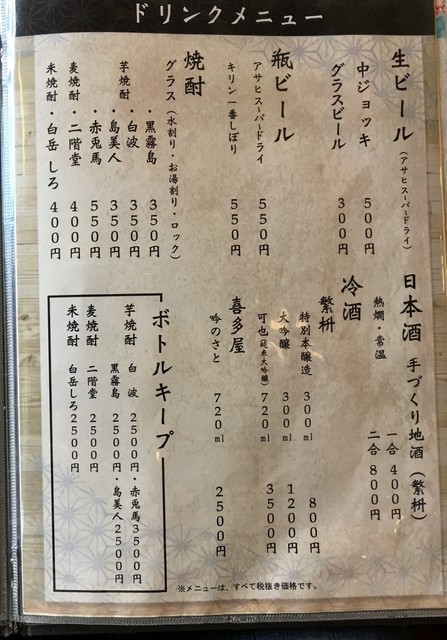 ドリンクメニュー
生ビール（アサヒスーパードライ）
中ジョッキ 500円
グラスビール 300円
瓶ビール
アサヒスーパードライ 550円
キリン一番しぼり 550円
焼酎
グラス（水割り・お湯割り・ロック）
芋焼酎 ・黒霧島 350円
・白波 350円
・島美人 350円
・赤兎馬 550円
麦焼酎 ・二階堂 400円
米焼酎 ・白岳しろ 400円
日本酒 手づくり地酒（繁桝）
熱燗・常温 一合 400円
二合 800円
冷酒
繁桝
特別本醸造 300ml 800円
大吟醸 300ml 1200円
可也（純米大吟醸） 720ml 3500円
喜多屋
吟のさと 720ml 2500円
ボトルキープ
芋焼酎 白波 2500円・赤兎馬 3500円
黒霧島 2500円・島美人 2500円
麦焼酎 二階堂 2500円
米焼酎 白岳しろ 2500円
※メニューは、すべて税抜き価格です。